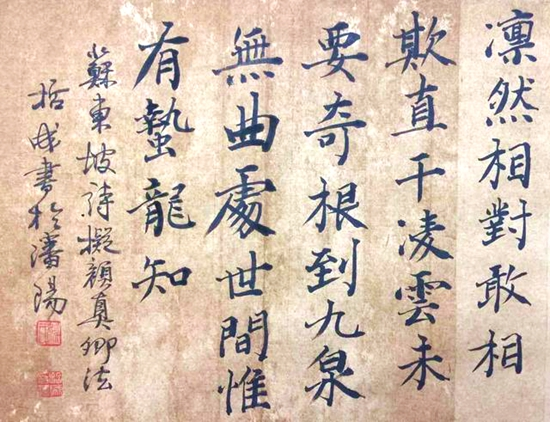 凛然相對敢相
欺直千凌雲未
要奇根到九泉
無曲處世間惟
有蟄龍知
蘇東坡詩擬顏真卿法
成書於瀋陽